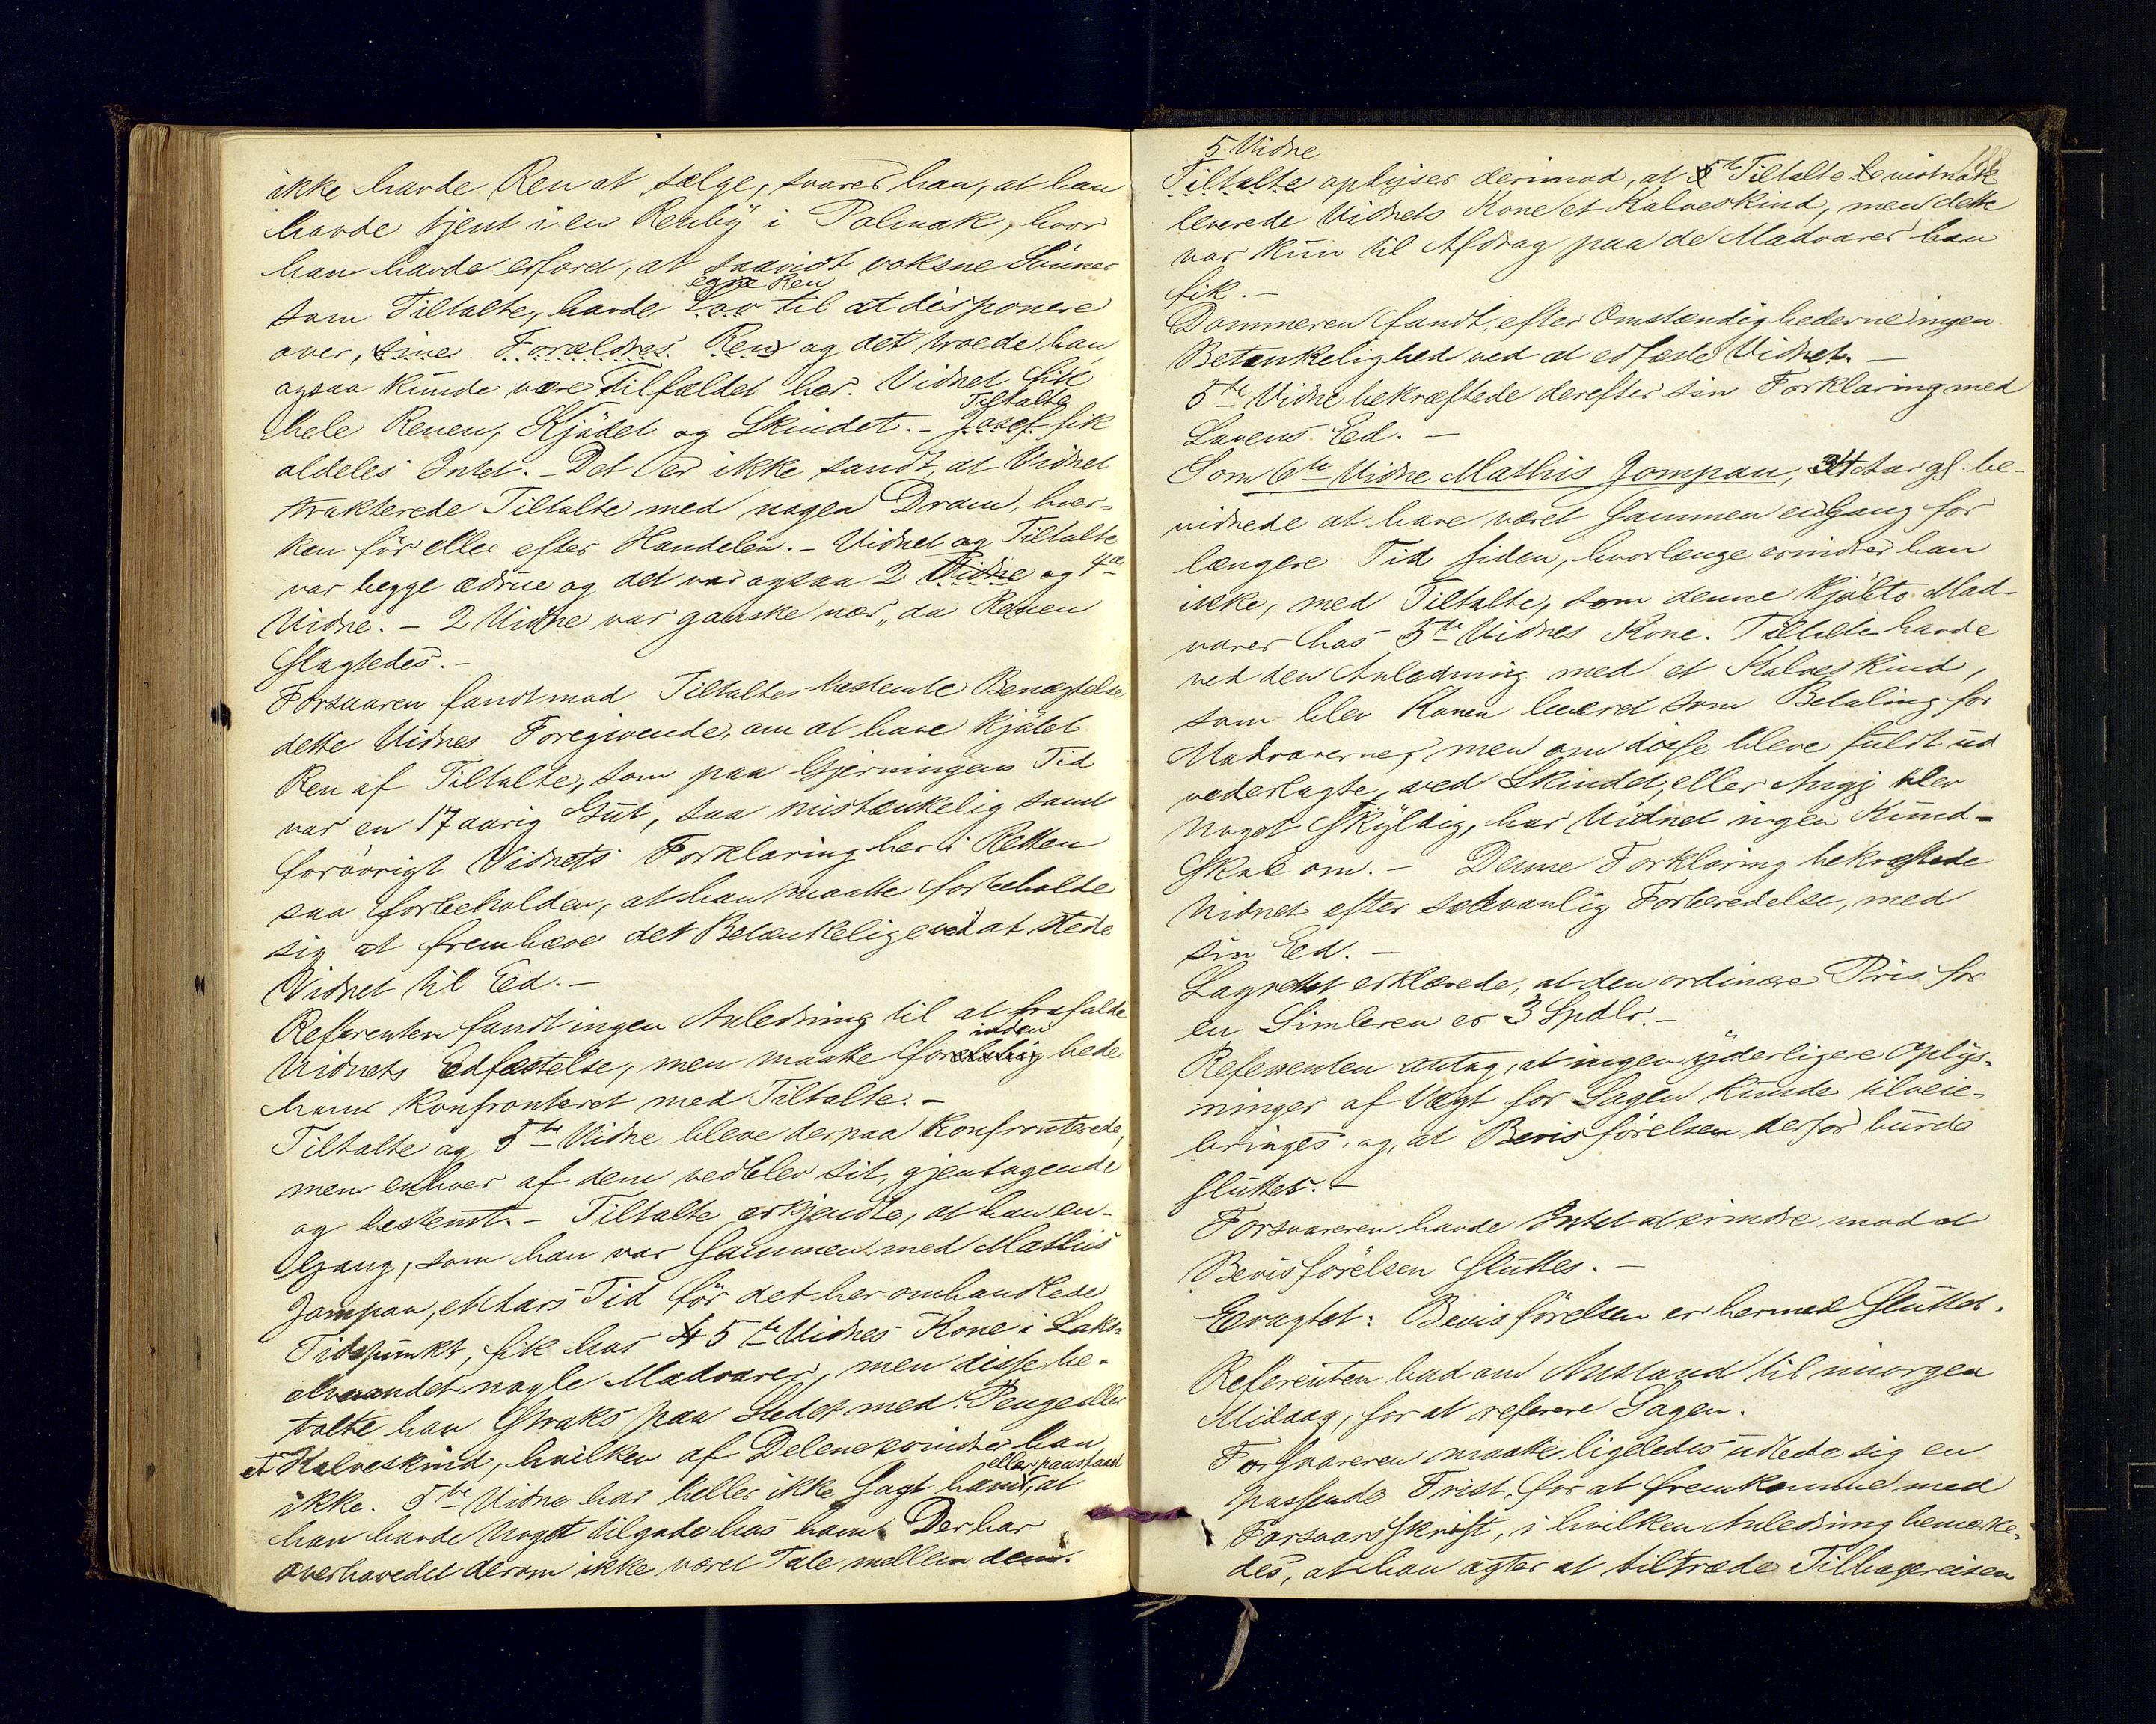 ikke havde Ren at sælge, svarer han, at han
havde tjent i en Renby i Polmak, hvor
han havde erfaret, at saavidt voksne Sönner
egne Ren
som Tiltalte, havde Lov til at disponere
over, sine Forældres Ren og det troede han
ogsaa kunde være Tilfældet her. Vidnet fik
Tiltalte
hele Renen, Kjödet og Skindet. - Josef fik
aldeles Intet. - Det er ikke sandt, at Vidnet
trakterede Tiltalte med nogen Dram, hver-
ken för eller efter Handelen. - Vidnet og Tiltalte
var begge ædrue og det var ogsaa 2 Vidne og 4de
Vidne. - 2 Vidne var ganske nær, da Renen
slagtedes. -
Forsvaren fandt mod Tiltaltes bestemte Benægtelse
dette Vidnes Foregivende, om at have kjöbt
Ren af Tiltalte, som paa Gjerningens Tid
var en 17 aarig Gut, saa mistænkelig samt
forövrigt Vidnets Forklaring her i Retten
saa forbeholden, at han maatte forbeholde
sig at fremhæve det Betænkelige ved at stede
Vidnet til Ed. -
Referenten fandt ingen Anledning til at frafalde
inden
Vidnets Edfæstelse, men maatte for bede
ham konfronteret med Tiltalte. -
Tiltalte og 5te Vidne bleve derpaa konfronterede,
men enhver af dem vedblev sit, gjentagende
og bestemt. - Tiltalte erkjendte, at han en-
Gang, som han var sammen med Mathis
Jompan, et Aars Tid för det her omhandlede
Tidspunkt, fik hos 5te Vidnes Kone i Laks-
elvvandet nogle Madvarer, men disse be-
talte han straks paa Stedet med Penge eller
et Kalveskind, hvilken af Delene erindrer han
eller paastaad
ikke. 5te Vidne har heller ikke sagt ham, at
han havde Noget tilgode hos ham. Der har
overhovedet derom ikke været Tale mellem dem.
5 Vidne
Tiltalte oplyser derimod, at Tiltalte levistnok
leverede Vidnets Kone et Kalveskind, men dette
var kun til Afdrag paa de Madvarer han
fik. -
Dommeren fandt, efter Omstændighederne ingen
Betænkelighed ved at edfæste Vidnet. -
5te Vidne bekræftede derefter sin Forklaring med
Lovens Ed. -
Som 6te Vidne Mathis Jompan, 34 Aar gl. be-
vidnede at have været sammen engang for
længere Tid siden, hvorlænge erindrer han
ikke, med Tiltalte, som denne kjöbte Mad-
varer hos 5te Vidnes Kone. Tiltalte havde
ved den Anledning med et Kalveskind,
som blev Konen leveret som Betaling for
Madvarerne, men om disse bleve fuldt ud
vederlagte, ved Skindet, eller Angj blev
Noget skyldig, har Vidnet ingen Kund-
skab om. - Denne Forklaring bekræftede
Vidnet efter sedvanlig Forberedelse, med
sin Ed. -
Lagrettet erklærede, at den ordinære Pris for
en Simleren er 3 Spdlr. -
Referenten antog, at ingen yderligere Oplys-
ninger af Vægt for Sagen kunde tilveie-
bringes, og, at Bevisförelsen derfor burde
sluttes. -
Forsvareren havde Intet at erindre mod at
Bevisförelsen sluttes. -
Eragtet: Bevisförelsen er hermed sluttet.
Referenten bad om Anstand til imorgen
Middag, for at referere Sagen.
Forsvareren maatte ligeledes udbede sig en
passende Frist, for at fremkomme med
Forsvarsskrift, i hvilken Anledning bemærke-
des, at han agter at tiltræde Tilbagereisen